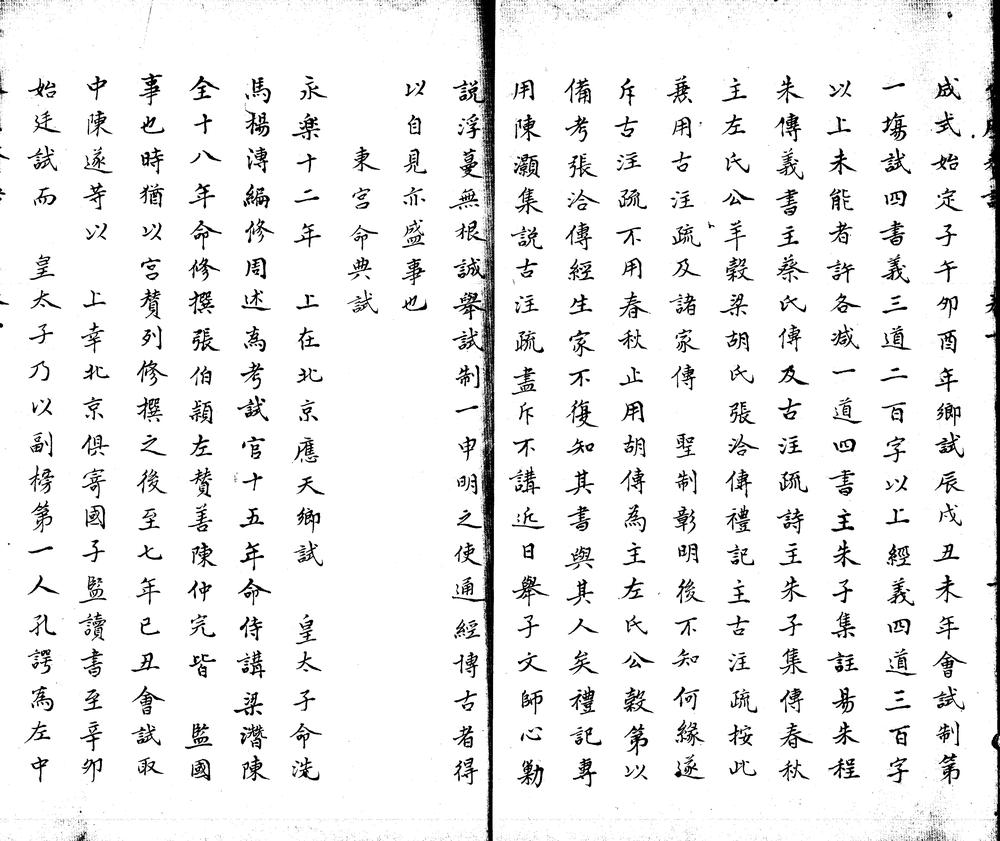 成式始定子午卯酉年鄉試辰戌丑未年會試制第
一塲試四書義三道二百字以上經義四道三百字
以上未能者許各减一道四書主朱子集註昜朱程
朱傳義書主蔡氏傳及古注疏詩主朱子集傳春秋
主左氏公羊穀梁胡氏張洽傳禮記主古注疏按此
蒹用古注疏及諸家傳 聖制彰明後不知何緣遂
斥古注疏不用春秋止用胡傳為主左氏公穀第以
備考張洽傳經生家不復知其書與其人矣禮記專
用陳灝集說古注疏盡斥不講近日舉子文師心勦
説浮蔓無根誠舉試制一申明之使通經博古者得
以自見亦盛事也
東宮命典試
永樂十二年 上在北京應天鄉試 皇太子命洗
馬楊溥編修周述為考試官十五年命侍講梁潛陳
全十八年命修撰張伯穎左贊善陳仲完皆 監國
事也時猶以宮贊列修撰之後至七年已丑會試取
中陳遂等以 上幸北京俱寄國子監讀書至辛卯
始廷試而 皇太子乃以副榜第一人孔諤為左中